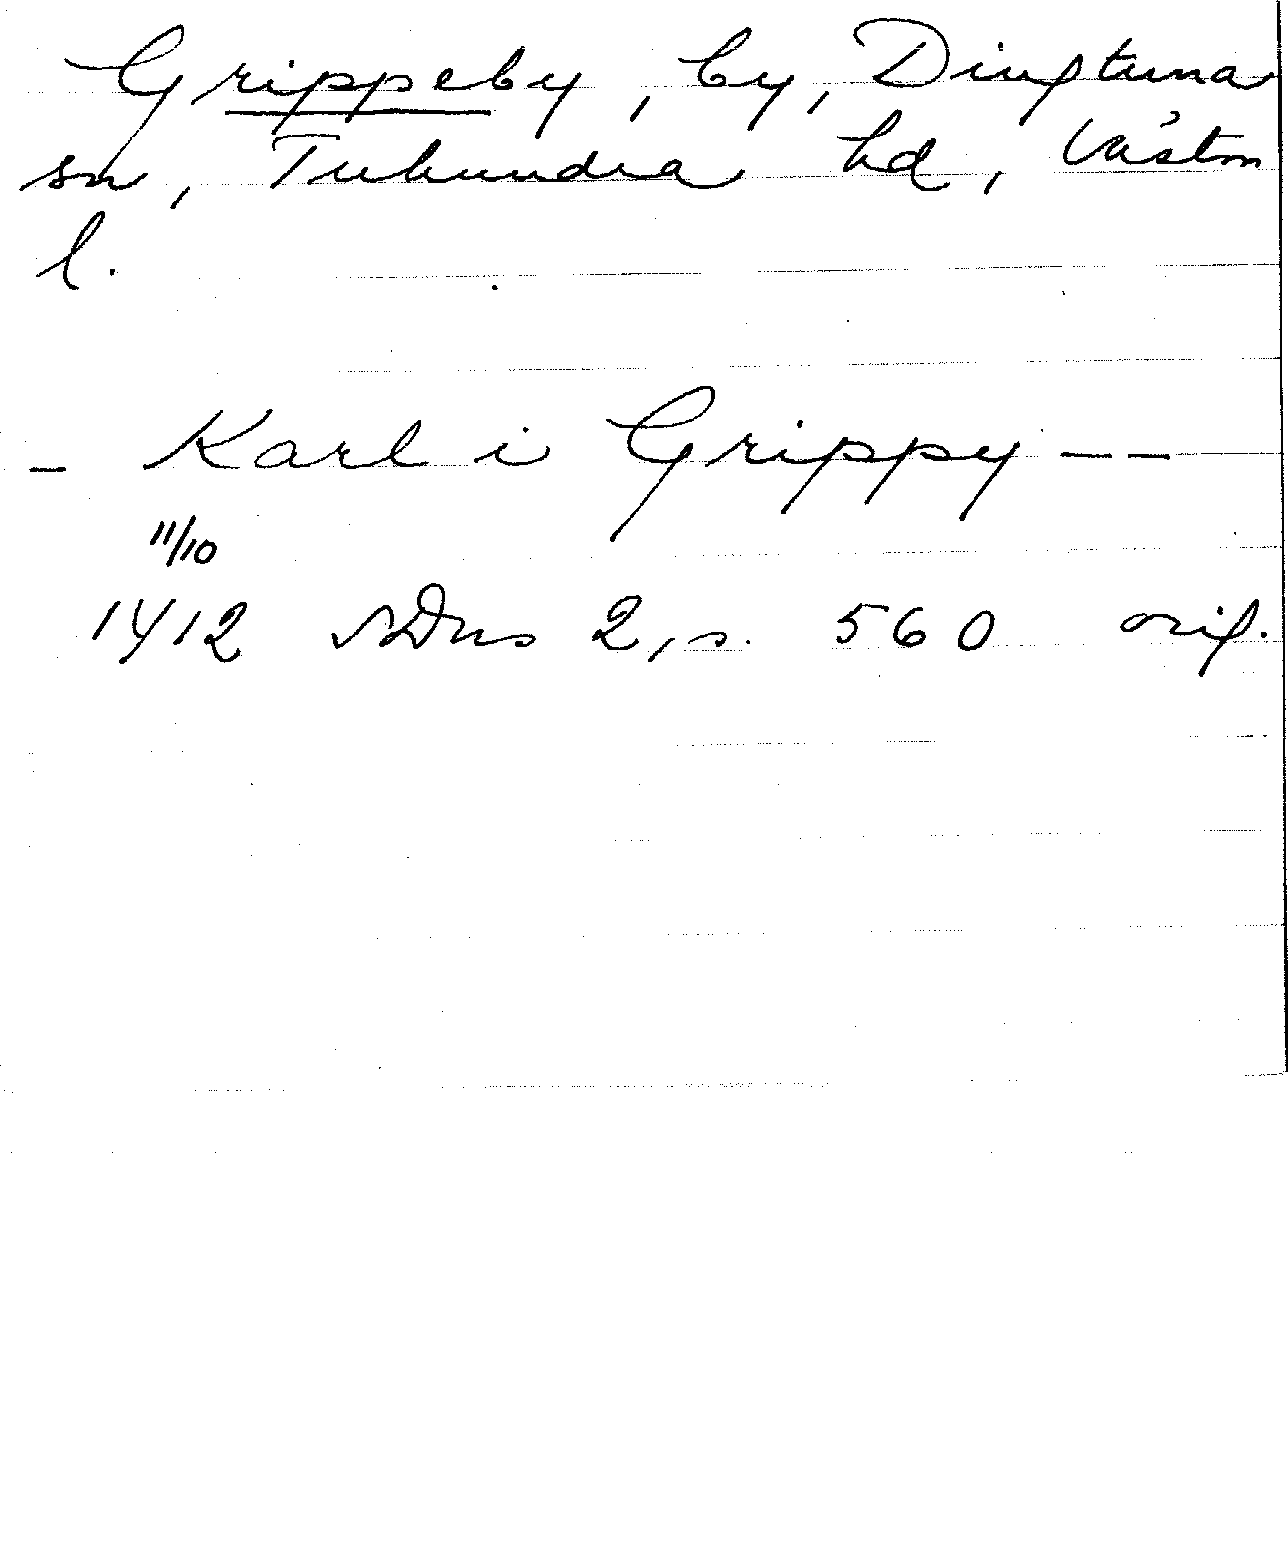 Grippeby, by, Dingtuna
sn, Tuhundra hd, Västm
l.
- Karl i Grippy - -
11/10
1412 SDns 2, s. 560 orig.